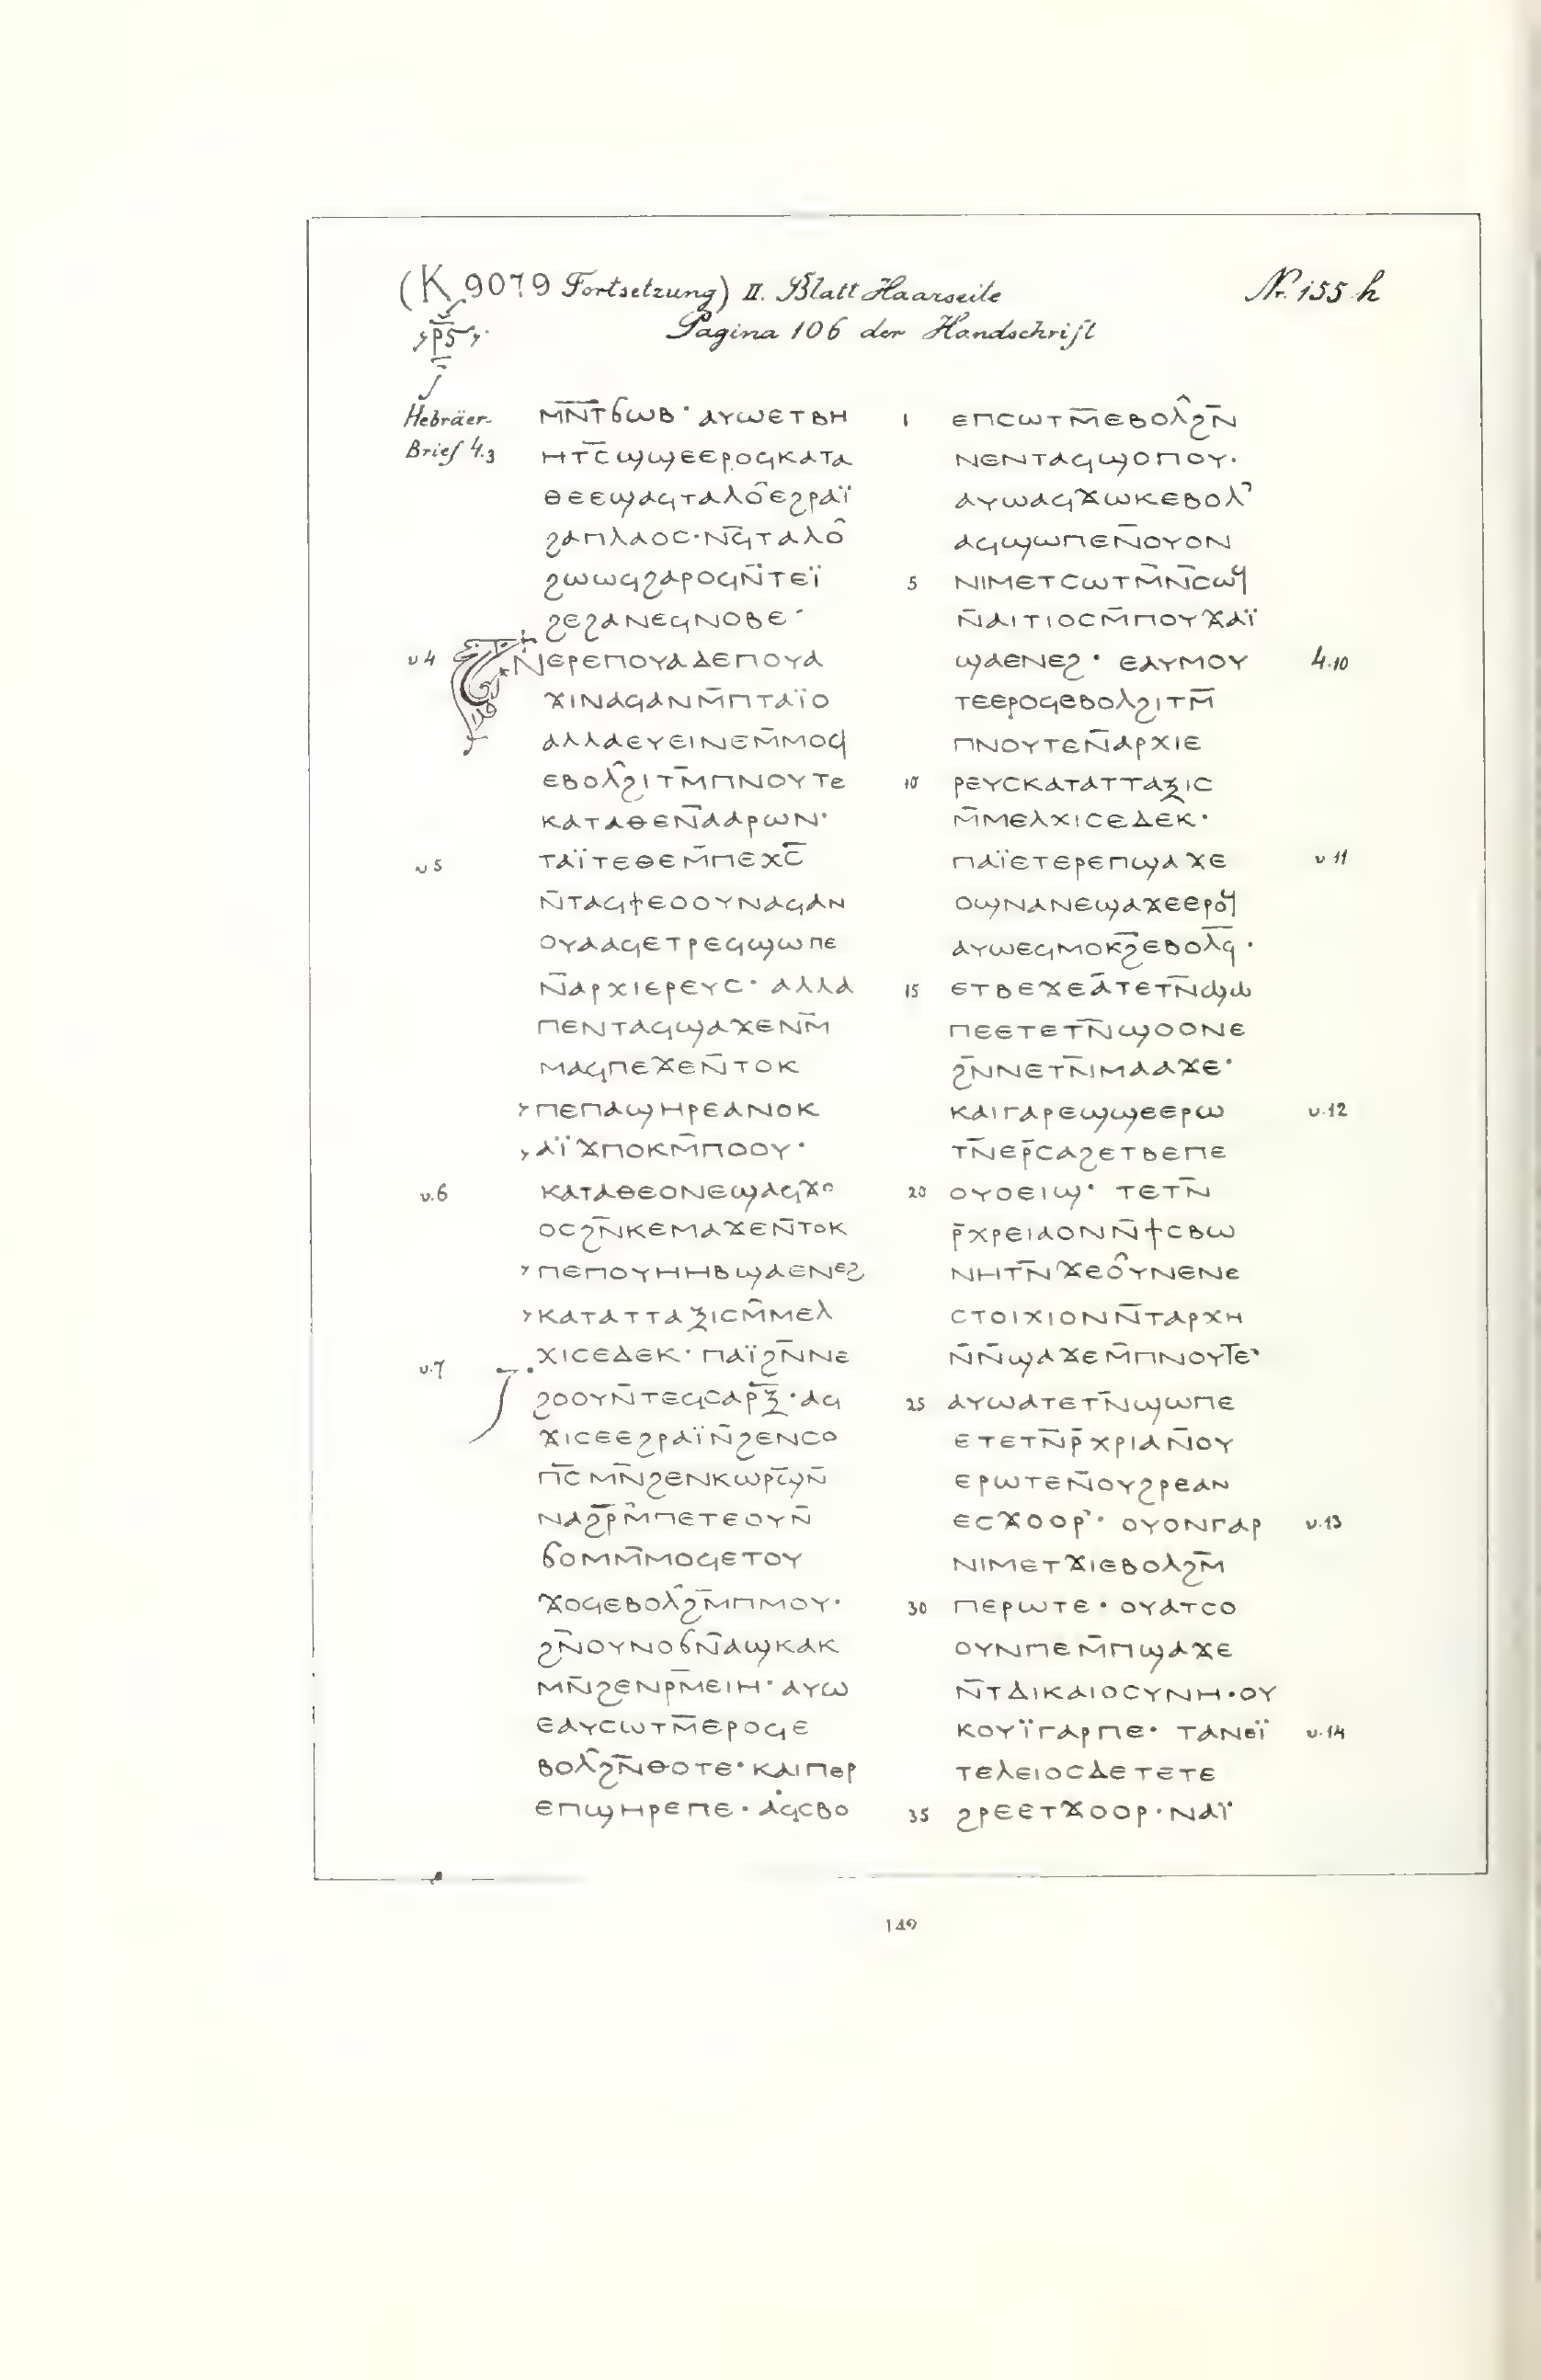 (K 9079 Fortsetzung) II. Blatt Haarseite
Nr. 155 h
Pagina 106 der Handschrift
Hebräer-
Brief 4.3
ⲙ̅ⲛ̅ⲧ̅ϭⲱⲃ· ⲁⲩⲱⲉⲧⲃⲏ
ⲏⲧⲥ̅ϣϣⲉⲉⲣⲟϥⲕⲁⲧⲁ
ⲑⲉⲉϣⲁϥⲧⲁⲗⲟ̂ⲉϩⲣⲁⲓ̈
ϩⲁⲡⲗⲁⲟⲥ·ⲛϥ̅ⲧⲁⲗⲟ̂
ϩⲱⲱϥϩⲁⲣⲟϥⲛ̅ⲧⲉⲓ̈
ϩⲉϩⲁⲛⲉϥⲛⲟⲃⲉ·
v 4
ⲛⲉⲣⲉⲡⲟⲩⲁⲇⲉⲡⲟⲩⲁ
ϫⲓⲛⲁϥⲁⲛⲙ̅ⲡⲧⲁⲓ̈ⲟ
ⲁⲗⲗⲁⲉⲩⲉⲓⲛⲉⲙ̅ⲙⲟϥ
ⲉⲃⲟⲗ̂ϩⲓⲧⲙ̅ⲡⲛⲟⲩⲧⲉ
ⲕⲁⲧⲁⲑⲉⲛ̅ⲁⲁⲣⲱⲛ·
v 5
ⲧⲁⲓ̈ⲧⲉⲑⲉⲙ̅ⲡⲉⲭⲥ̅
ⲛ̅ⲧⲁϥϯⲉⲟⲟⲩⲛⲁϥⲁⲛ
ⲟⲩⲁⲁϥⲉⲧⲣⲉϥϣⲱⲡⲉ
ⲛ̅ⲁⲣⲭⲓⲉⲣⲉⲩⲥ· ⲁⲗⲗⲁ
ⲡⲉⲛⲧⲁϥϣⲁϫⲉⲛⲙ̅
ⲙⲁϥⲡⲉϫⲉⲛ̅ⲧⲟⲕ
›ⲡⲉⲡⲁϣⲏⲣⲉⲁⲛⲟⲕ
›ⲁⲓ̈ϫⲡⲟⲕⲙ̅ⲡⲟⲟⲩ·
v. 6
ⲕⲁⲧⲁⲑⲉⲟⲛⲉϣⲁϥϫⲟ
ⲟⲥϩⲛ̅ⲕⲉⲙⲁϫⲉⲛ̅ⲧⲟⲕ
›ⲡⲉⲡⲟⲩⲏⲏⲃϣⲁⲉⲛⲉϩ
›ⲕⲁⲧⲁⲧⲧⲁⲝⲓⲥⲙ̅ⲙⲉⲗ
v. 7
ⲭⲓⲥⲉⲇⲉⲕ· ⲡⲁⲓ̈ϩⲛ̅ⲛⲉ
ϩⲟⲟⲩⲛ̅ⲧⲉϥⲥⲁⲣ̅ⲝ̅·ⲁϥ
ϫⲓⲥⲉⲉϩⲣⲁⲓ̈ⲛ̅ϩⲉⲛⲥⲟ
ⲡⲥ̅ⲙⲛ̅ϩⲉⲛⲕⲱⲣϣ̅ⲛ̅
ⲛⲁϩⲣ̅ⲙ̅ⲡⲉⲧⲉⲟⲩⲛ̅
ϭⲟⲙⲙ̅ⲙⲟϥⲉⲧⲟⲩ
ϫⲟϥⲉⲃⲟⲗ̂ϩⲙ̅ⲡⲙⲟⲩ·
ϩⲛ̅ⲟⲩⲛⲟϭⲛ̅ⲁϣⲕⲁⲕ
ⲙⲛ̅ϩⲉⲛⲣⲙ̅ⲉⲓⲏ· ⲁⲩⲱ
ⲉⲁⲩⲥⲱⲧⲙ̅ⲉⲣⲟϥⲉ
ⲃⲟⲗ̂ϩⲛ̅ⲑⲟⲧⲉ· ⲕⲁⲓⲡⲉⲣ
ⲉⲡϣⲏⲣⲉⲡⲉ· ⲁϥⲥⲃⲟ
1 ⲉⲡⲥⲱⲧⲙ̅ⲉⲃⲟⲗ̂ϩⲛ̅
ⲛⲉⲛⲧⲁϥϣⲟⲡⲟⲩ·
ⲁⲩⲱⲁϥϫⲱⲕⲉⲃⲟⲗ
ⲁϥϣⲱⲡⲉⲛ̅ⲟⲩⲟⲛ
5 ⲛⲓⲙⲉⲧⲥⲱⲧⲙ̅ⲛ̅ⲥⲱϥ
ⲛ̅ⲁⲓⲧⲓⲟⲥⲙ̅ⲡⲟⲩϫⲁⲓ̈
ϣⲁⲉⲛⲉϩ· ⲉⲁⲩⲙⲟⲩ 4.10
ⲧⲉⲉⲣⲟϥⲉⲃⲟⲗϩⲓⲧⲙ̅
ⲡⲛⲟⲩⲧⲉⲛ̅ⲁⲣⲭⲓⲉ
10 ⲣⲉⲩⲥⲕⲁⲧⲁⲧⲧⲁⲝⲓⲥ
ⲙ̅ⲙⲉⲗⲭⲓⲥⲉⲇⲉⲕ·
ⲡⲁⲓ̈ⲉⲧⲉⲣⲉⲡϣⲁϫⲉ v 11
ⲟϣⲛⲁⲛⲉϣⲁϫⲉⲉⲣⲟϥ
ⲁⲩⲱⲉϥⲙⲟⲕϩ̅ⲉⲃⲟⲗϥ̅·
15 ⲉⲧⲃⲉϫⲉⲁ̅ⲧⲉⲧⲛ̅ϣⲱ
ⲡⲉⲉⲧⲉⲧⲛ̅ϣⲟⲟⲛⲉ
ϩⲛ̅ⲛⲉⲧⲛ̅ⲙⲁⲁϫⲉ·
ⲕⲁⲓⲅⲁⲣⲉϣϣⲉⲉⲣⲱ v. 12
ⲧⲛ̅ⲉⲣ̅ⲥⲁϩⲉⲧⲃⲉⲡⲉ
20 ⲟⲩⲟⲉⲓϣ· ⲧⲉⲧⲛ̅
ⲣ̅ⲭⲣⲉⲓⲁⲟⲛⲛ̅ϯⲥⲃⲱ
ⲛⲏⲧⲛ̅ϫⲉⲟ̂ⲩⲛⲉⲛⲉ
ⲥⲧⲟⲓⲭⲓⲟⲛⲛ̅ⲧⲁⲣⲭⲏ
ⲛ̅ⲛ̅ϣⲁϫⲉⲙ̅ⲡⲛⲟⲩⲧⲉ·
25 ⲁⲩⲱⲁⲧⲉⲧⲛ̅ϣⲱⲡⲉ
ⲉⲧⲉⲧⲛ̅ⲣ̅ⲭⲣⲓⲁⲛ̅ⲟⲩ
ⲉⲣⲱⲧⲉⲛ̅ⲟⲩϩⲣⲉⲁⲛ
ⲉⲥϫⲟⲟⲣ· ⲟⲩⲟⲛⲅⲁⲣ v. 13
ⲛⲓⲙⲉⲧϫⲓⲉⲃⲟⲗϩⲙ̅
30 ⲡⲉⲣⲱⲧⲉ· ⲟⲩⲁⲧⲥⲟ
ⲟⲩⲛⲡⲉⲙ̅ⲡϣⲁϫⲉ
ⲛ̅ⲧⲇⲓⲕⲁⲓⲟⲥⲩⲛⲏ·ⲟⲩ
ⲕⲟⲩⲓ̈ⲅⲁⲣⲡⲉ· ⲧⲁⲛⲉⲓ̈ v. 14
ⲧⲉⲗⲉⲓⲟⲥⲇⲉⲧⲉⲧⲉ
35 ϩⲣⲉⲉⲧϫⲟⲟⲣ·ⲛⲁⲓ̈
149